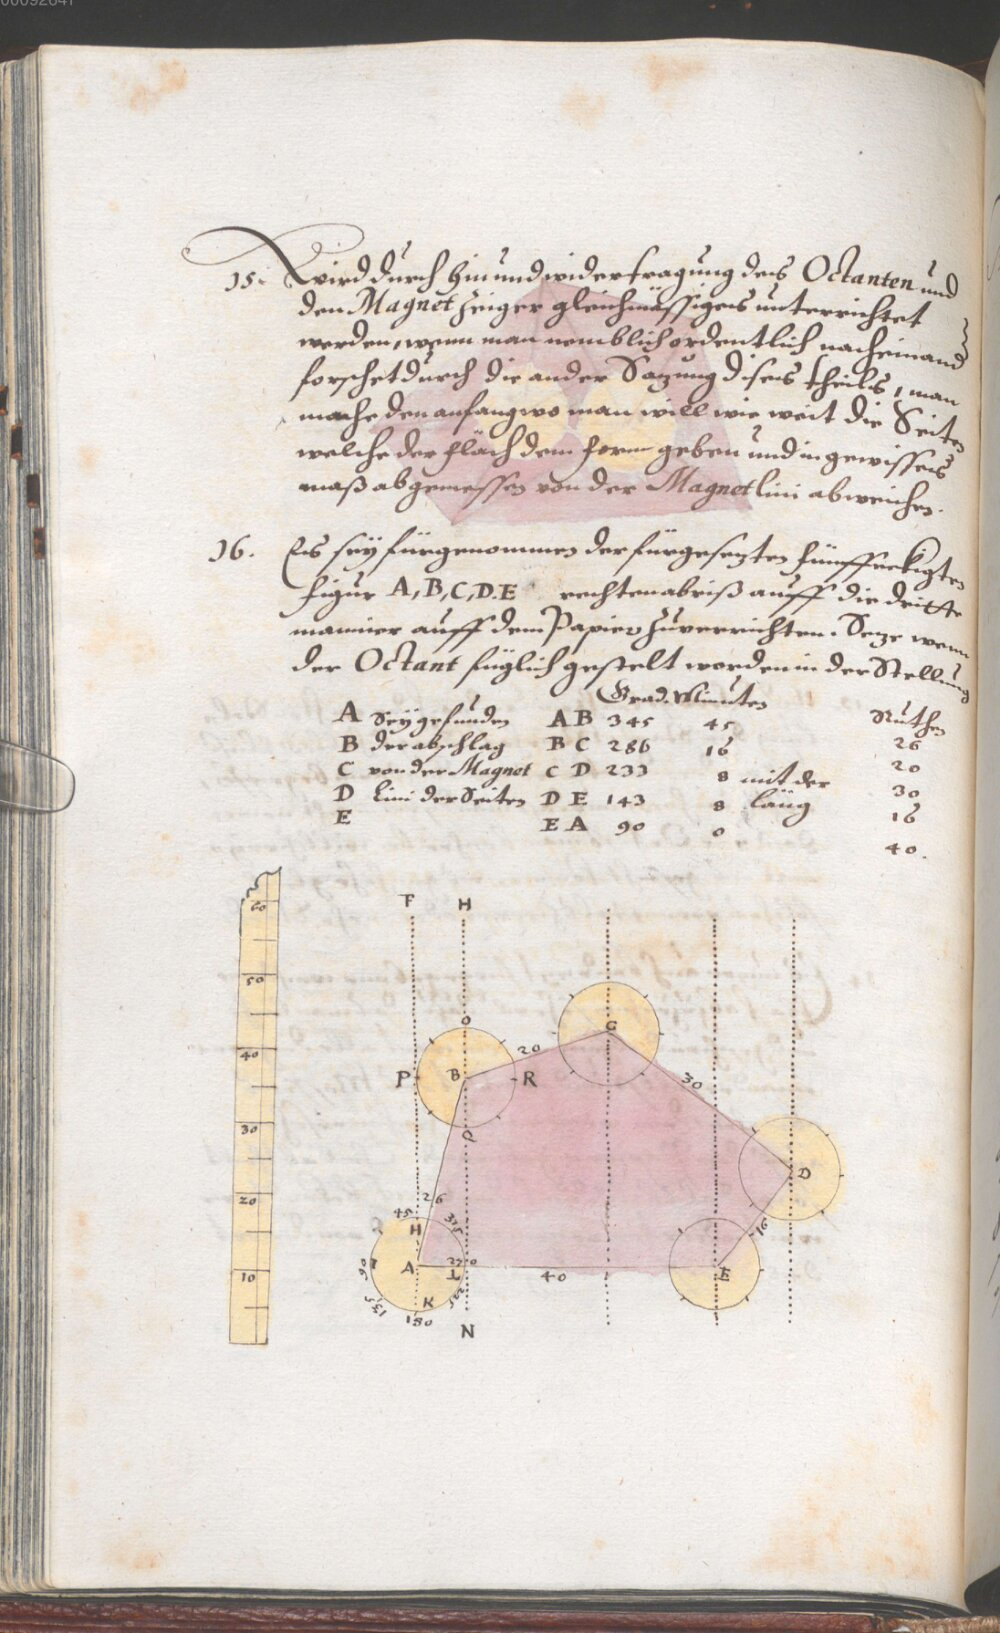 00092641
15. wird durch hin und widertragung des Octanten und
den Magnet Zeiger gleichmässiges unterrichtet
werden, wenn man nemblich ordentlich nacheinand
forschet durch die ander Sazung dises theils, man
mache den anfang wo man will wie weit die Seiten
welche der fläch dem form geben und in gewisses
maß abgemessen von der Magnetlini abweichen.
16. Es seÿ fürgenommen der fürgesezten fünffeckigten
figur A, B, C, D. E rechten abriß auff die dritte
mannier auff dem Papier zuverrichten. Seze wenn
der Octant füglich gestelt worden in der Stellung
Grad. Minuten Ruthen
A Seÿ gefunden A B 345 45 26
B der abschlag B C 286 16 20
C von der Magnet C D 233 8 mit der 30
D Lini der Seiten D E 143 8 läng 16
E E A 90 0 40.
F H
60
50
40
30
20
10
O
P B R
Q
20
C
30
D
16
E
40
26
45 H 315
90 A 270
L
135 K 225
180
N